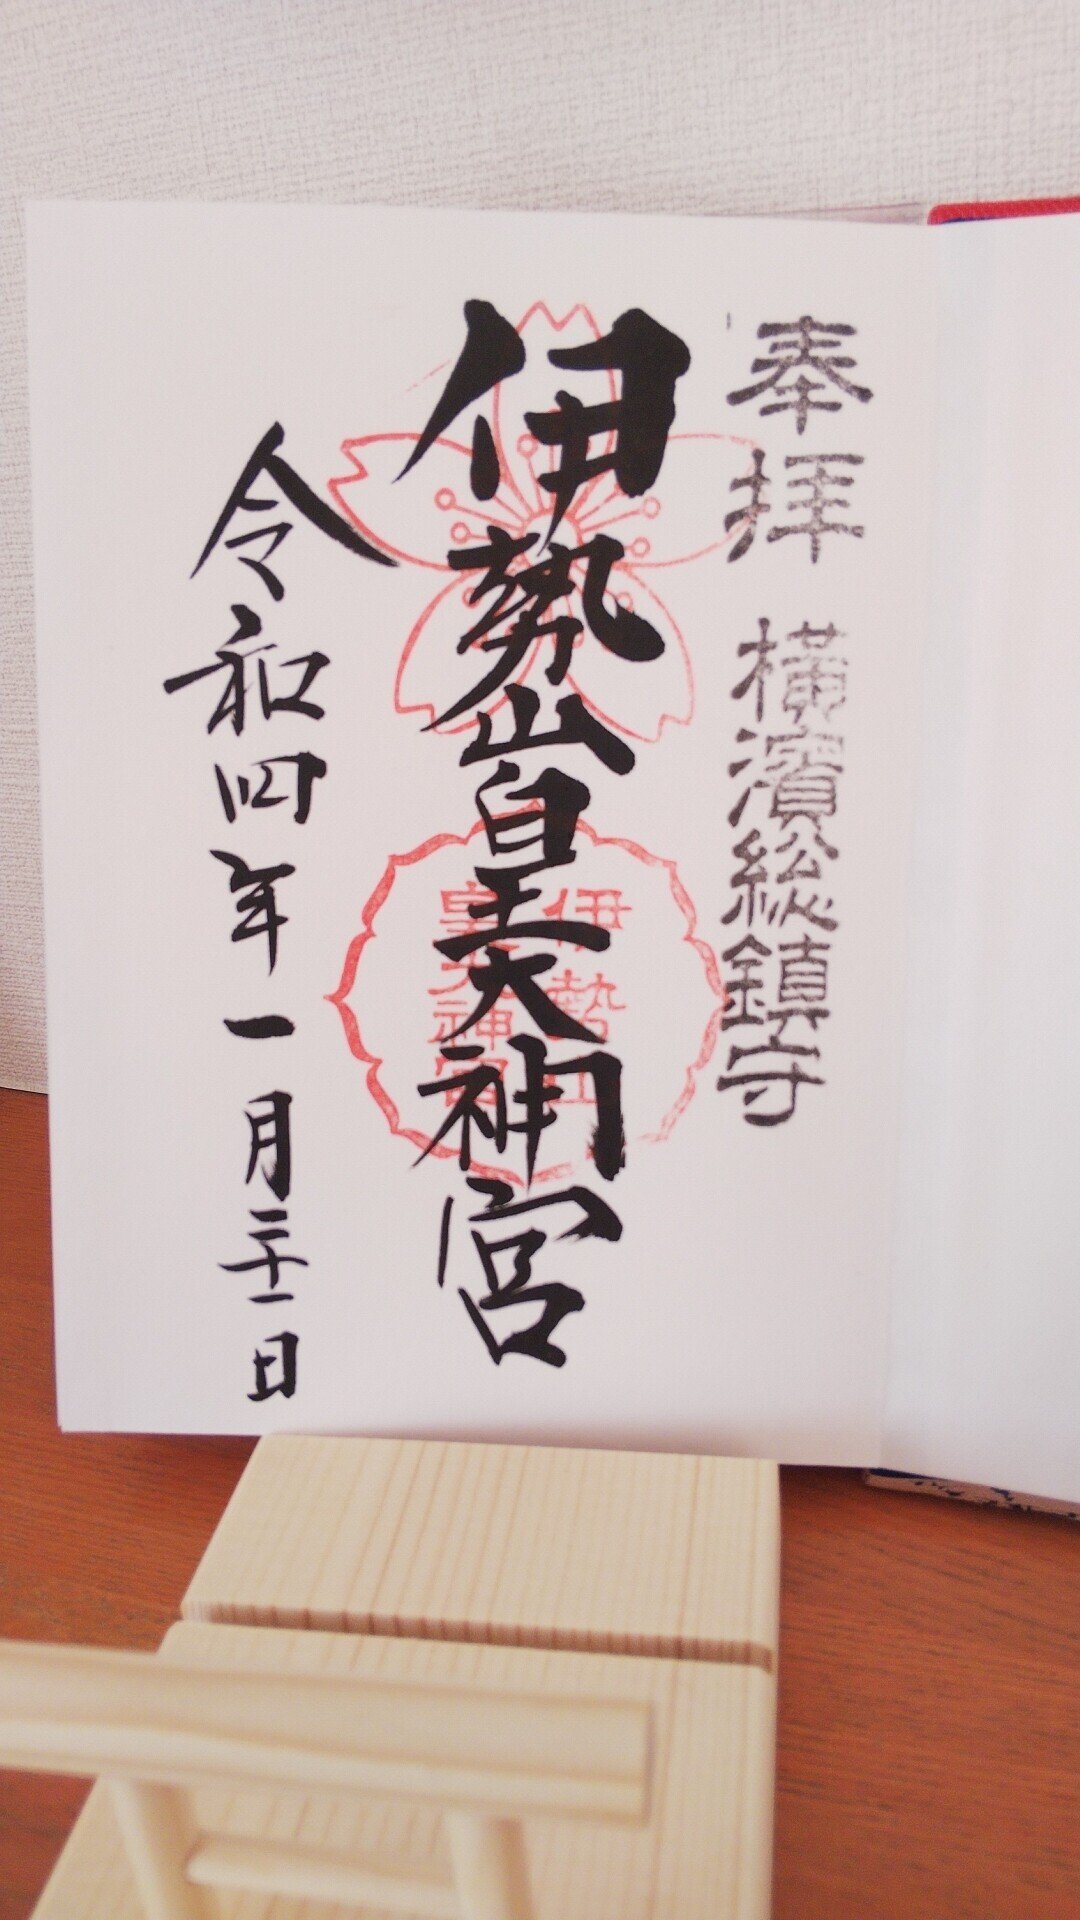 奉拝 横濱総鎮守
伊勢山皇大神宮
伊勢山
皇大神宮
令和四年一月三十一日